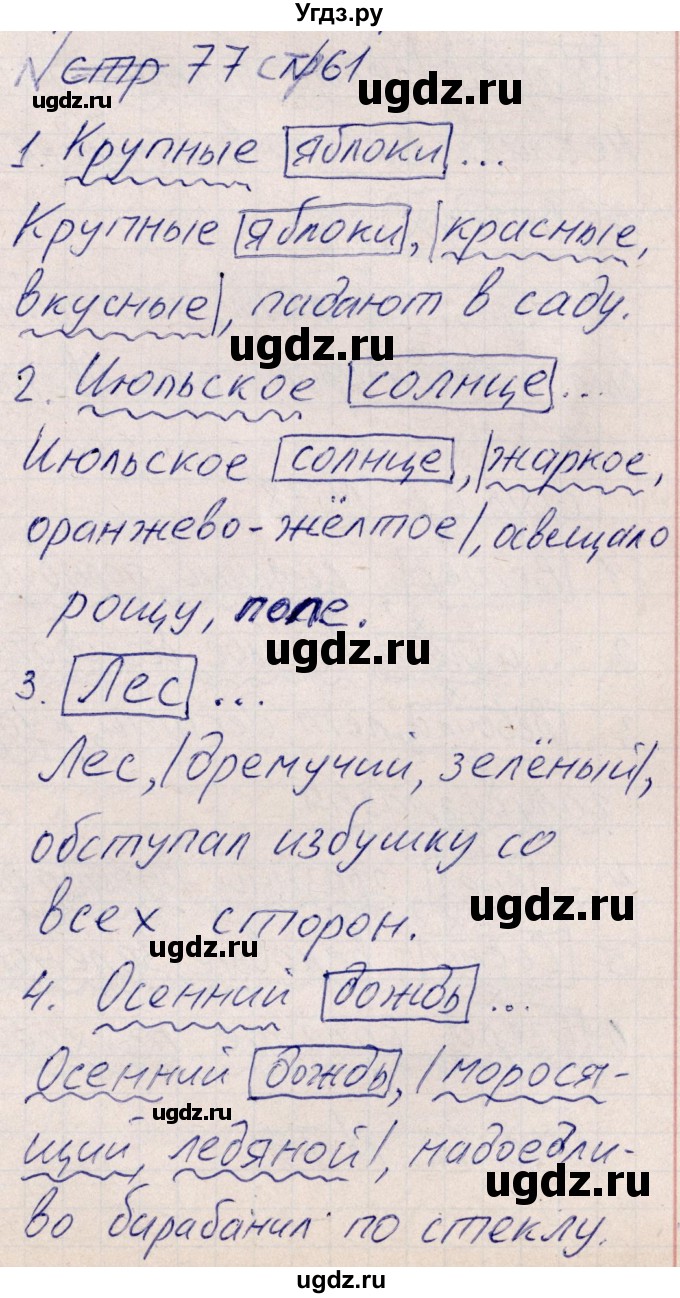 Угдз.ру
№ стр 77 стр 61
ugdz.ru
1. Крупные яблоки ...
Крупные яблоки, |красные,
вкусные|, падают в саду.
ugdz.ru
2. Июльское солнце ...
Июльское солнце, |жаркое,
оранжево-жёлтое|, освещало
рощу, поле.
ugdz.ru
3. Лес ...
Лес, |дремучий, зелёный|,
обступал избушку со
ugdz.ru
всех сторон.
ugdz.ru
4. Осенний дождь ...
Осенний дождь, |морося-
ugdz.ru
щий, ледяной|, надоедли-
ugdz.ru
во барабанил по стеклу.
ugdz.ru